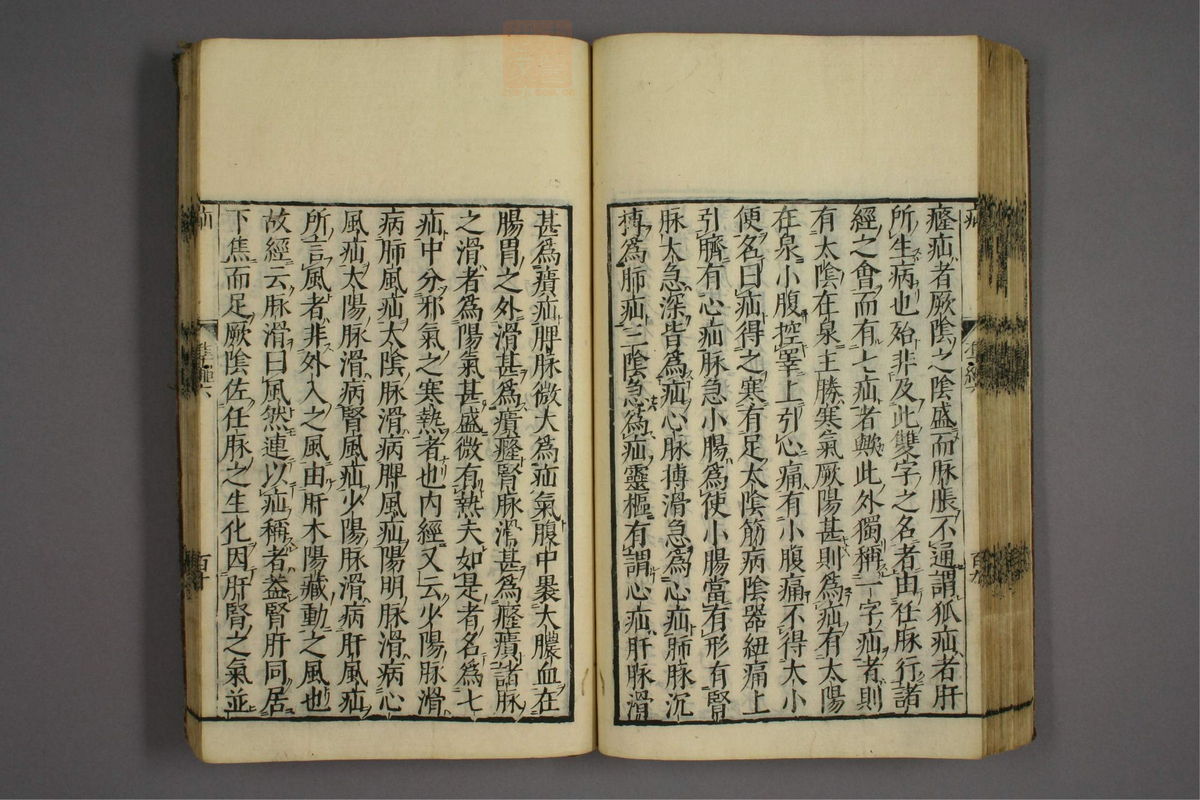 癃疝者厥陰之陰盛而脉脹不通謂狐疝者肝
所生病也殆非及此雙字之名者由任脉行諸
經之會而有七疝者歟此外獨稱一字疝者則
有太陰在泉主勝寒氣厥陽甚則為疝有太陽
在泉小腹控睪上引心痛有小腹痛不得太小
便名曰疝得之寒有足太陰筋病陰器紐痛上
引臍有心疝脉急小腸為使小腸當有形有腎
脉太急深皆為疝心脉搏滑急為心疝肺脉沉
搏為肺疝三陰急為疝靈樞有謂心疝肝脉滑
甚為㿉疝脾脉微大為疝氣腹中裹大膿血在
腸胃之外滑甚為㿉癃腎脉滑甚為癃㿉諸脉
之滑者為陽氣甚盛微有熱夫如是者名為七
疝中分邪氣之寒熱者也内經又云少陽脉滑
病肺風疝太陰脉滑病脾風疝陽明脉滑病心
風疝太陽脉滑病腎風疝少陽脉滑病肝風疝
所言風者非外入之風由肝木陽藏動之風也
故經云脉滑曰風然連以疝稱者蓋腎肝同居
下焦而足厥陰佐任脉之生化因肝腎之氣並